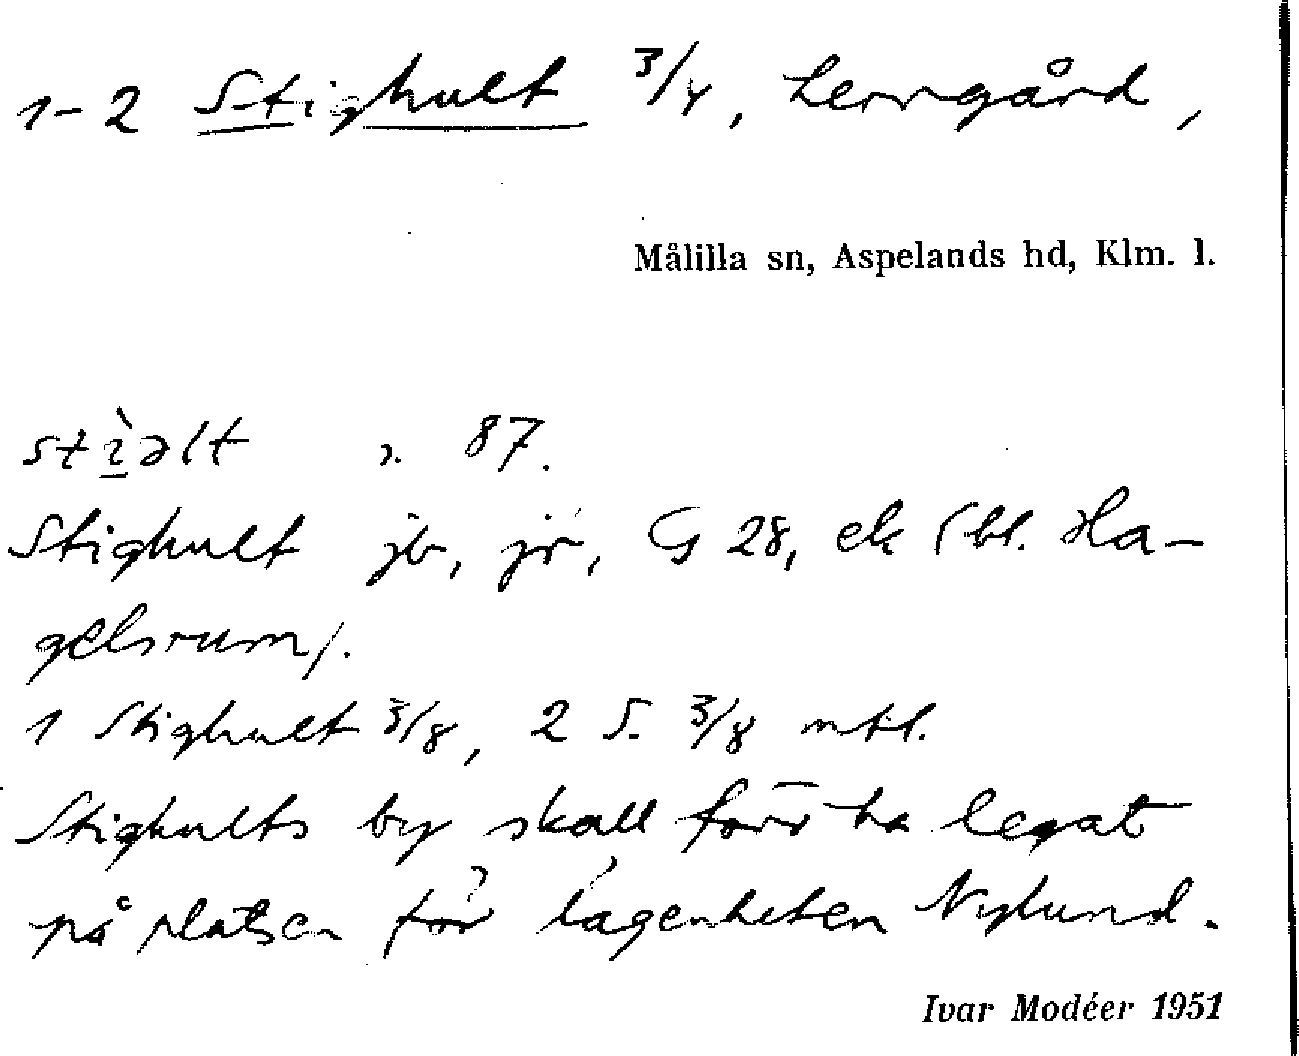 1-2 Stighult 3/4, herrgård,
Målilla sn, Aspelands hd, Klm. l.
stìəlt s. 87.
Stighult jb, jr, G 28, ek (bl. Ha-
gelsrum).
1 Stighult 3/8, 2 S. 3/8 mtl.
Stighults by skall förr ha legat
på platsen för lägenheten Nylund.
Ivar Modéer 1951